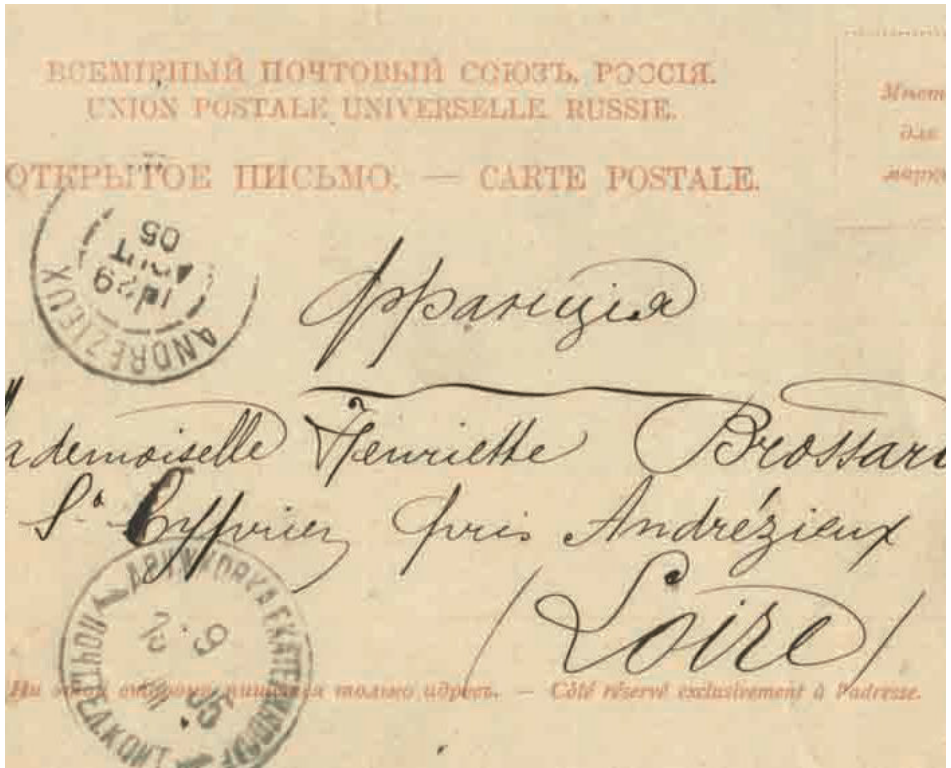 ВСЕМІРНЫЙ ПОЧТОВЫЙ СОЮЗЪ. РОССІЯ.
UNION POSTALE UNIVERSELLE. RUSSIE.
Мѣсто
для
марки
ОТКРЫТОЕ ПИСЬМО. — CARTE POSTALE.
ANDREZIEUX
29
AOUT
05
Франція
ademoiselle Henriette Brossard
St Cyprien près Andrézieux
(Loire)
На этой сторонѣ пишется только адресъ. — Côté réservé exclusivement à l'adresse.